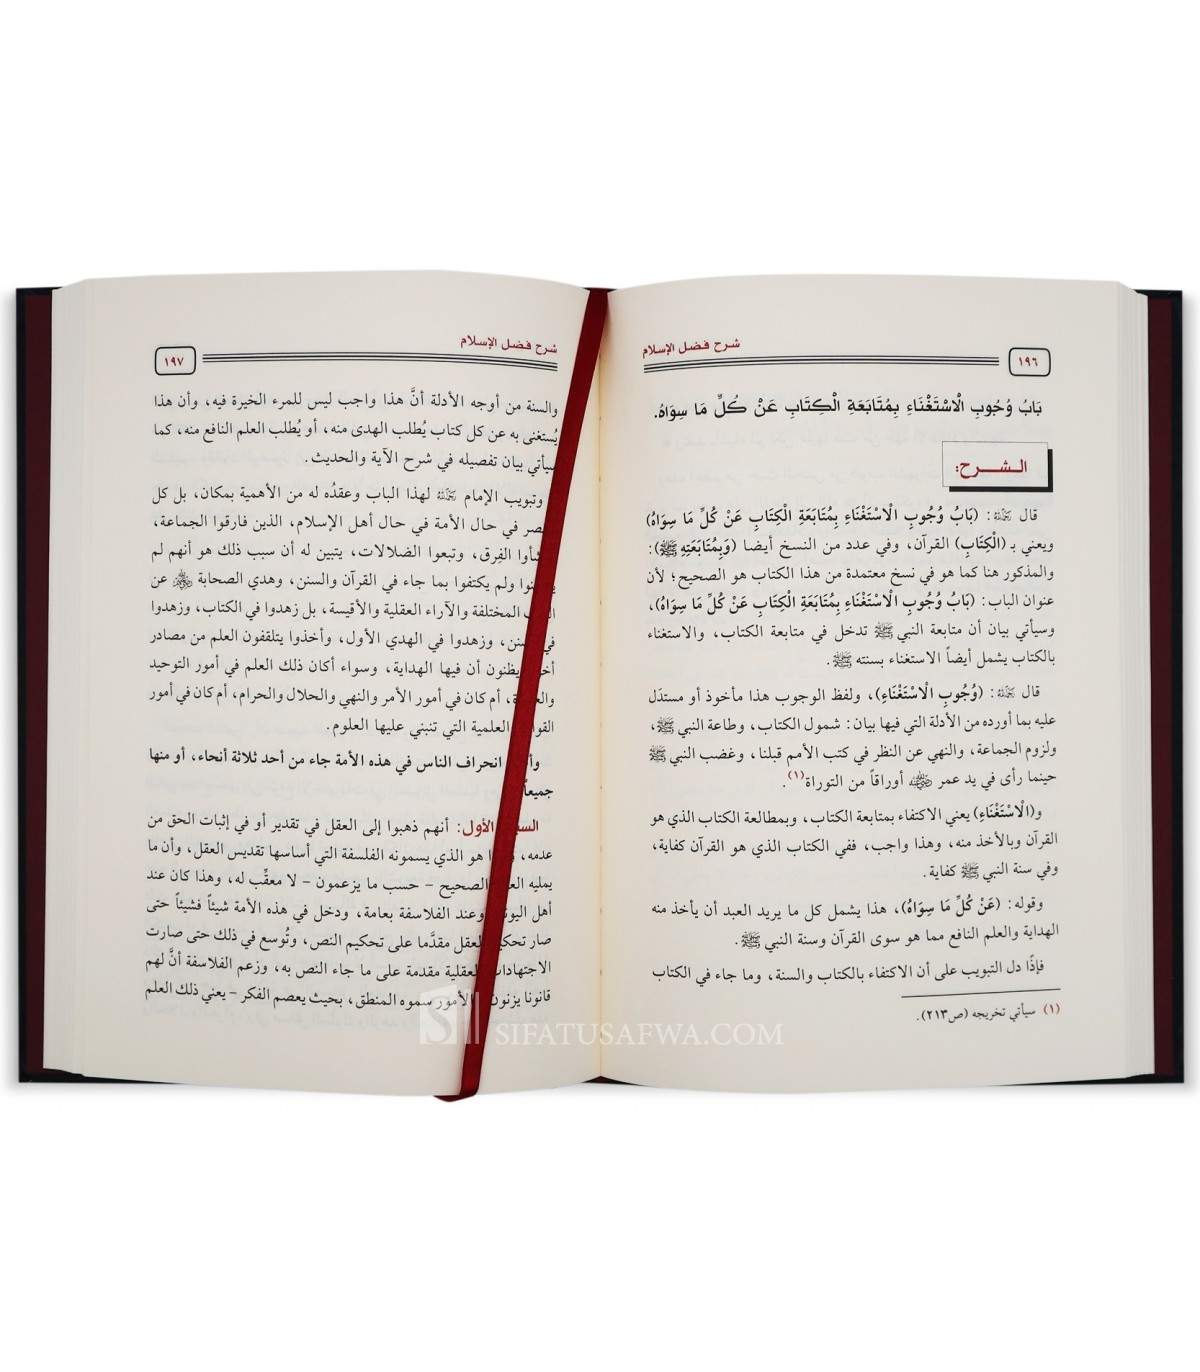 شرح فضل الإسلام
١٩٦
بَابُ وُجُوبِ الْاسْتَغْنَاءِ بِمُتَابَعَةِ الْكِتَابِ عَنْ كُلِّ مَا سِوَاهُ.
الـشـــرح:
قال ﵀: (بَابُ وُجُوبِ الْاسْتَغْنَاءِ بِمُتَابَعَةِ الْكِتَابِ عَنْ كُلِّ مَا سِوَاهُ)
ويعني بـ (الْكِتَابِ) القرآن، وفي عدد من النسخ أيضا (وَبِمُتَابَعَتِهِ ﷺ):
والمذكور هنا كما هو في نسخ معتمدة من هذا الكتاب هو الصحيح؛ لأن
عنوان الباب: (بَابُ وُجُوبِ الْاسْتَغْنَاءِ بِمُتَابَعَةِ الْكِتَابِ عَنْ كُلِّ مَا سِوَاهُ)،
وسيأتي بيان أن متابعة النبي ﷺ تدخل في متابعة الكتاب، والاستغناء
بالكتاب يشمل أيضاً الاستغناء بسنته ﷺ.
قال ﵀: (وُجُوبِ الْاسْتَغْنَاءِ)، ولفظ الوجوب هذا مأخوذ أو مستدَل
عليه بما أورده من الأدلة التي فيها بيان: شمول الكتاب، وطاعة النبي ﷺ،
ولزوم الجماعة، والنهي عن النظر في كتب الأمم قبلنا، وغضب النبي ﷺ
حينما رأى في يد عمر ﵁ أوراقاً من التوراة(١).
و(الْاسْتَغْنَاءِ) يعني الاكتفاء بمتابعة الكتاب، وبمطالعة الكتاب الذي هو
القرآن وبالأخذ منه، وهذا واجب، ففي الكتاب الذي هو القرآن كفاية،
وفي سنة النبي ﷺ كفاية.
وقوله: (عَنْ كُلِّ مَا سِوَاهُ)، هذا يشمل كل ما يريد العبد أن يأخذ منه
الهداية والعلم النافع مما هو سوى القرآن وسنة النبي ﷺ.
فإذًا دل التبويب على أن الاكتفاء بالكتاب والسنة، وما جاء في الكتاب
(١) سيأتي تخريجه (ص٢١٣).
شرح فضل الإسلام
١٩٧
والسنة من أوجه الأدلة أنَّ هذا واجب ليس للمرء الخيرة فيه، وأن هذا
يُستغنى به عن كل كتاب يُطلب الهدى منه، أو يُطلب العلم النافع منه، كما
سيأتي بيان تفصيله في شرح الآية والحديث.
وتبويب الإمام ﵀ لهذا الباب وعقدُه له من الأهمية بمكان، بل كل
في حال الأمة في حال أهل الإسلام، الذين فارقوا الجماعة،
الفِرق، وتبعوا الضلالات، يتبين له أن سبب ذلك هو أنهم لم
ولم يكتفوا بما جاء في القرآن والسنن، وهدي الصحابة ﵃ عن
المختلفة والآراء العقلية والأقيسة، بل زهدوا في الكتاب، وزهدوا
وزهدوا في الهدي الأول، وأخذوا يتلقفون العلم من مصادر
يظنون أن فيها الهداية، وسواء أكان ذلك العلم في أمور التوحيد
أم كان في أمور الأمر والنهي والحلال والحرام، أم كان في أمور
العلمية التي تنبني عليها العلوم.
انحراف الناس في هذه الأمة جاء من أحد ثلاثة أنحاء، أو منها
جميعاً
الأول: أنهم ذهبوا إلى العقل في تقدير أو في إثبات الحق من
عدمه، هو الذي يسمونه الفلسفة التي أساسها تقديس العقل، وأن ما
يمليه الصحيح – حسب ما يزعمون – لا معقِّب له، وهذا كان عند
أهل وعند الفلاسفة بعامة، ودخل في هذه الأمة شيئاً فشيئاً حتى
صار العقل مقدَّما على تحكيم النص، وتُوسع في ذلك حتى صارت
الاجتهادات العقلية مقدمة على ما جاء النص به، وزعم الفلاسفة أنَّ لهم
قانونا يزنون الأمور سموه المنطق، بحيث يعصم الفكر – يعني ذلك العلم
SIFATUSAFWA.COM